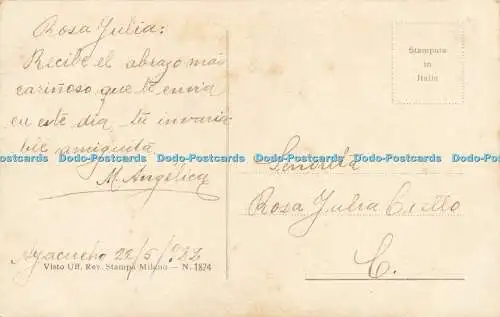 Rosa Julia:
Recibe el abrazo más
cariñoso que te envia
en este dia tu invaria
ble amiguita
M. Angelica
Ayacucho 22/5/922
Visto Uff. Rev. Stampa Milano — N. 1874
Stampata
in
Italia
Dodo-Postcards Dodo-Postcards Dodo-Postcards Dodo-Postcards Dodo-Postcards
Señorita
Rosa Julia
C.